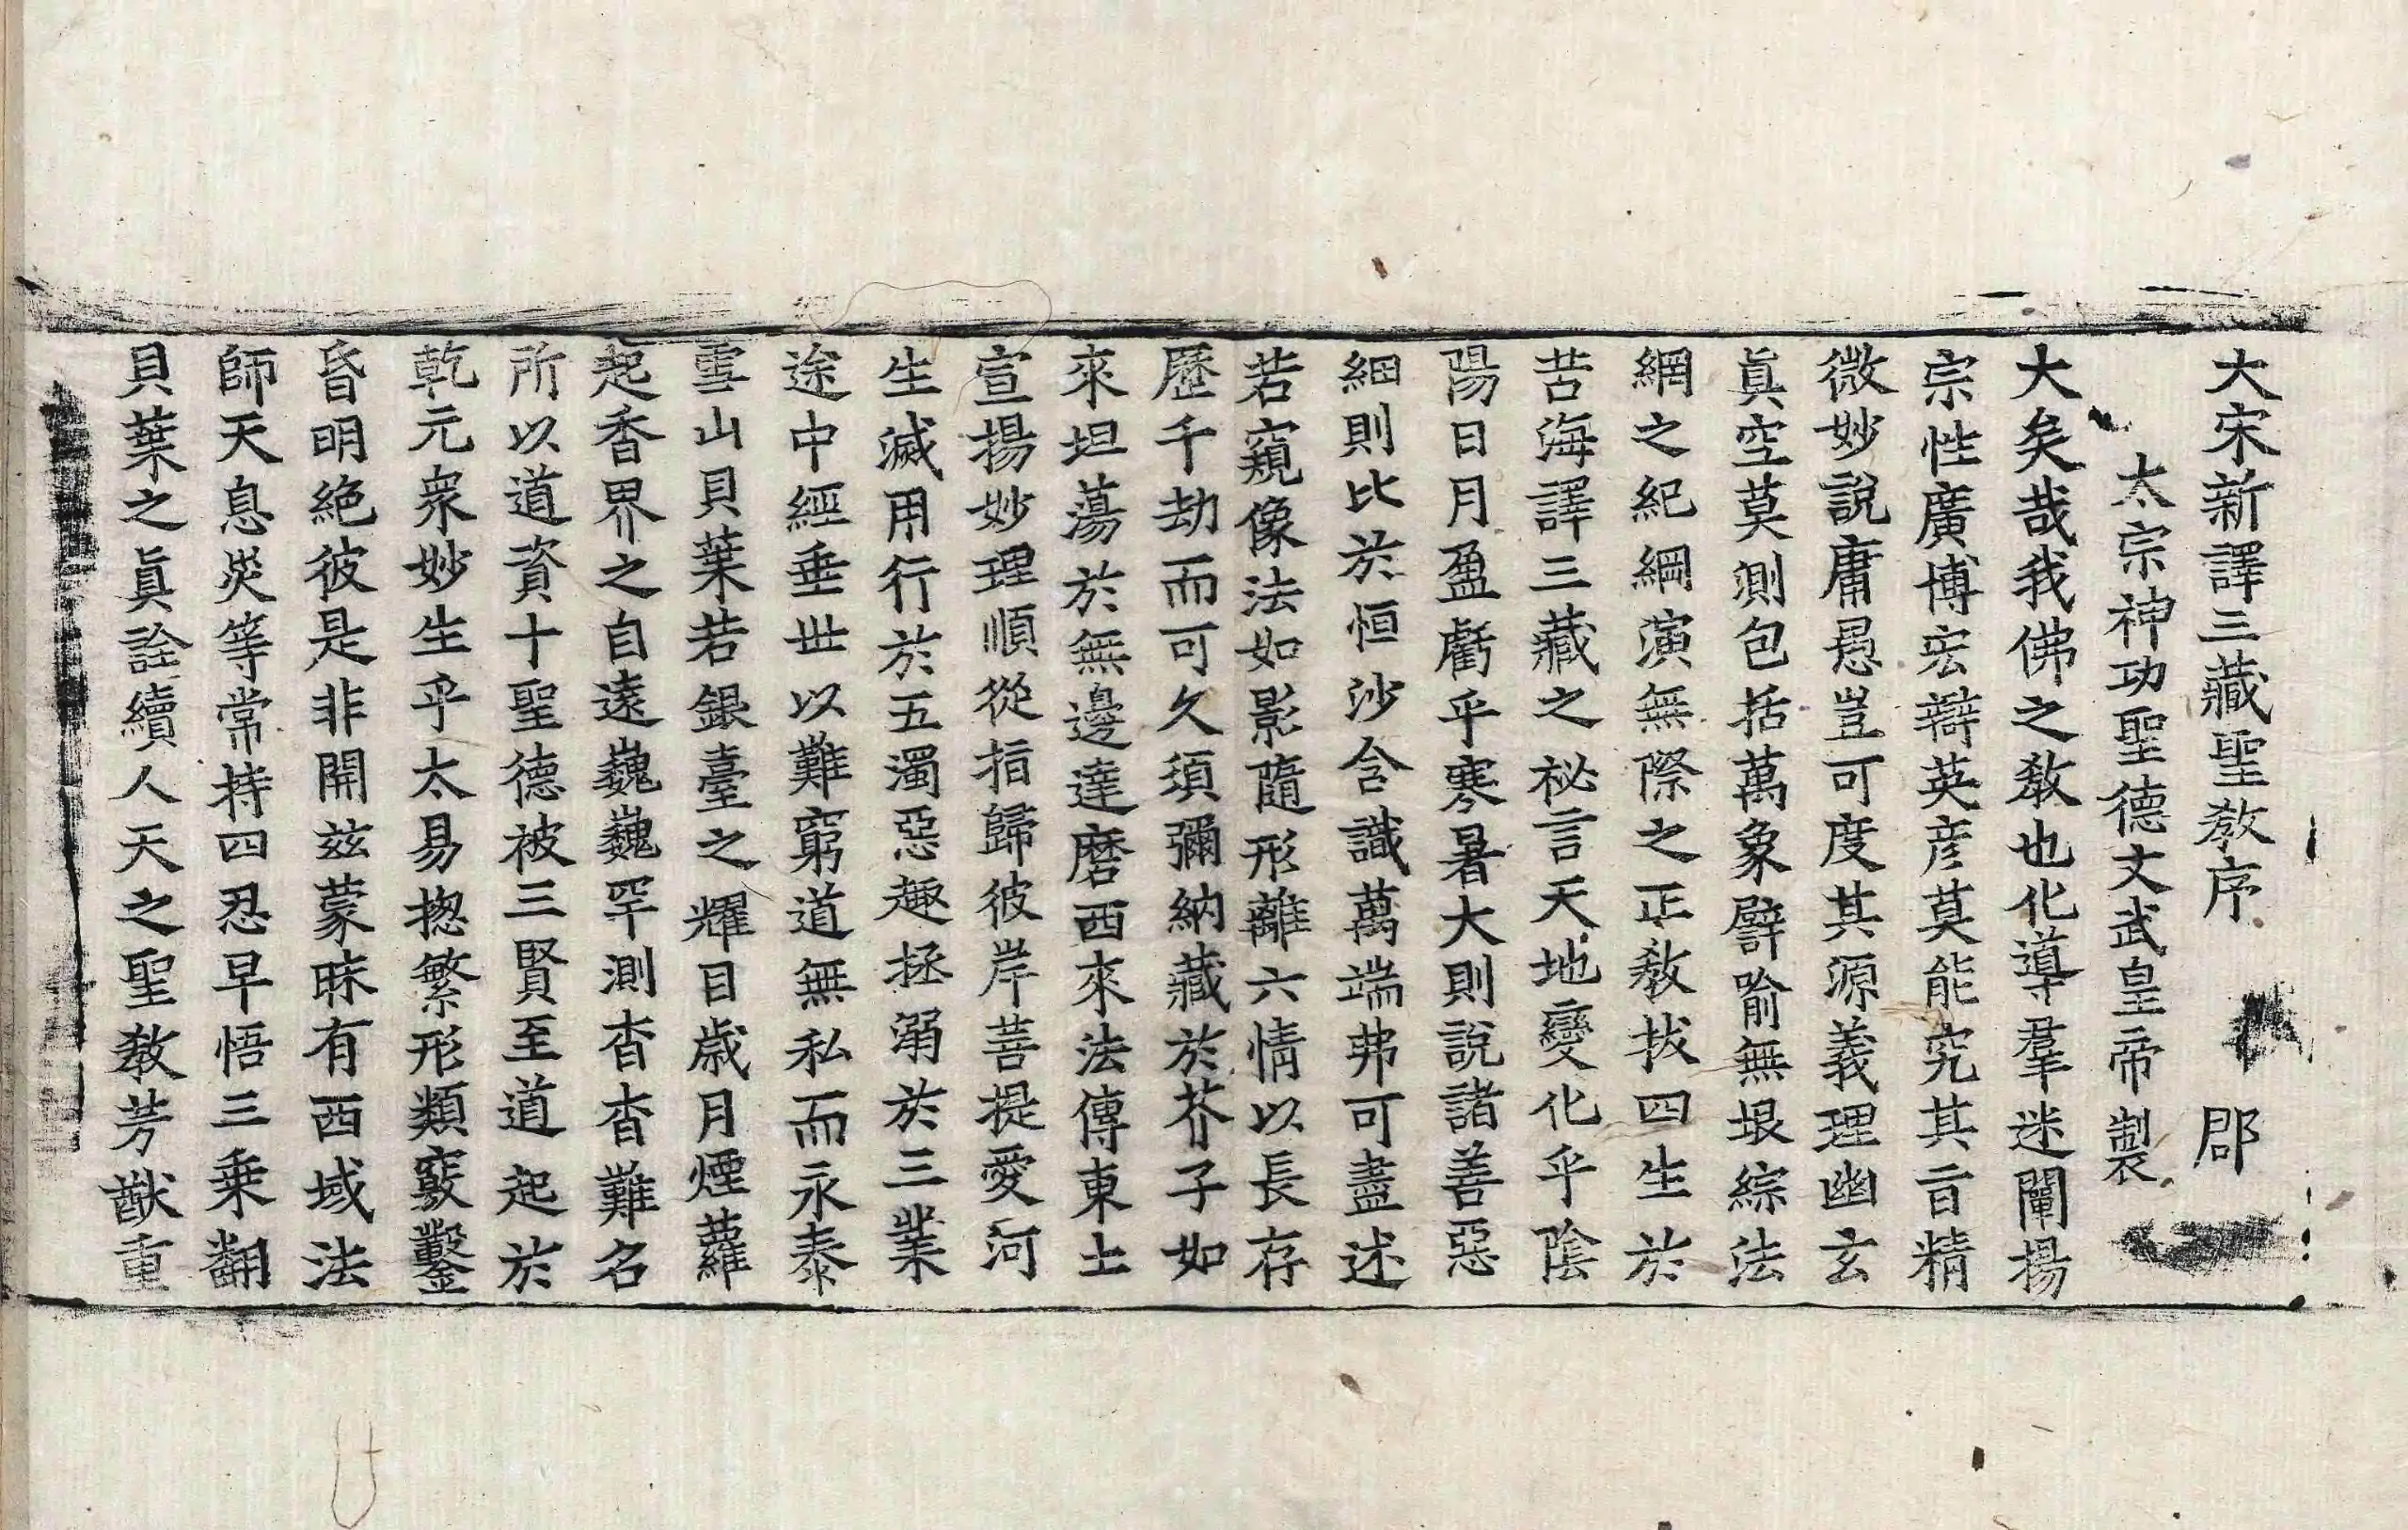 大宋新譯三藏聖教序 郡
太宗神功聖德文武皇帝製
大矣哉我佛之教也化導羣迷闡揚
宗性廣博宏辯英彦莫能究其旨精
微妙說庸愚豈可度其源義理幽玄
眞空莫測包括萬象譬喻無垠綜法
網之紀綱演無際之正教拔四生於
苦海譯三藏之祕言天地變化乎陰
陽日月盈虧乎寒暑大則說諸善惡
細則比於恒沙含識萬端弗可盡述
若窺像法如影隨形離六情以長存
歷千劫而可久須彌納藏於芥子如
來坦蕩於無邊達磨西來法傳東土
宣揚妙理順從指歸彼岸菩提愛河
生滅用行於五濁惡趣拯溺於三業
途中經垂世以難窮道無私而永泰
雪山貝葉若銀臺之耀目歲月煙蘿
起香界之自遠巍巍罕測杳杳難名
所以道資十聖德被三賢至道起於
乾元衆妙生乎太易揔繁形類竅鑿
昏明絶彼是非開兹蒙昧有西域法
師天息災等常持四忍早悟三乗翻
貝葉之眞詮續人天之聖教芳猷重